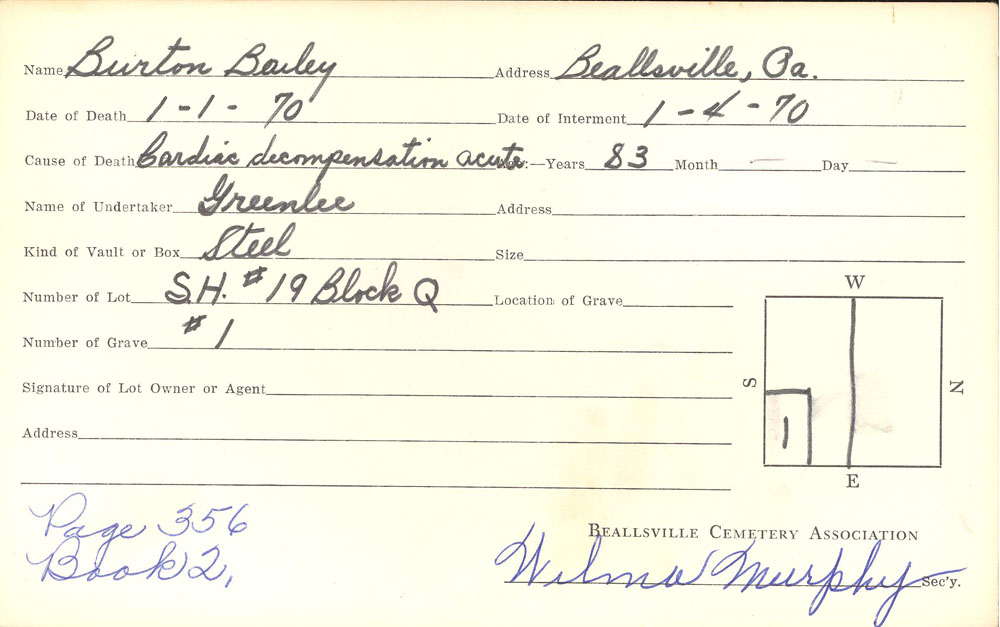 Name Burton Bailey Address Beallsville, Pa.
Date of Death 1-1-70 Date of Interment 1-4-70
Cause of Death Cardiac decompensation acute Age:—Years 83 Month — Day —
Name of Undertaker Greenlee Address
Kind of Vault or Box Steel Size
Number of Lot S.H. #19 Block Q Location of Grave
Number of Grave #1
Signature of Lot Owner or Agent
Address
W
S N
1
E
Page 356
Book 2,
BEALLSVILLE CEMETERY ASSOCIATION
Wilma Murphy Sec'y.